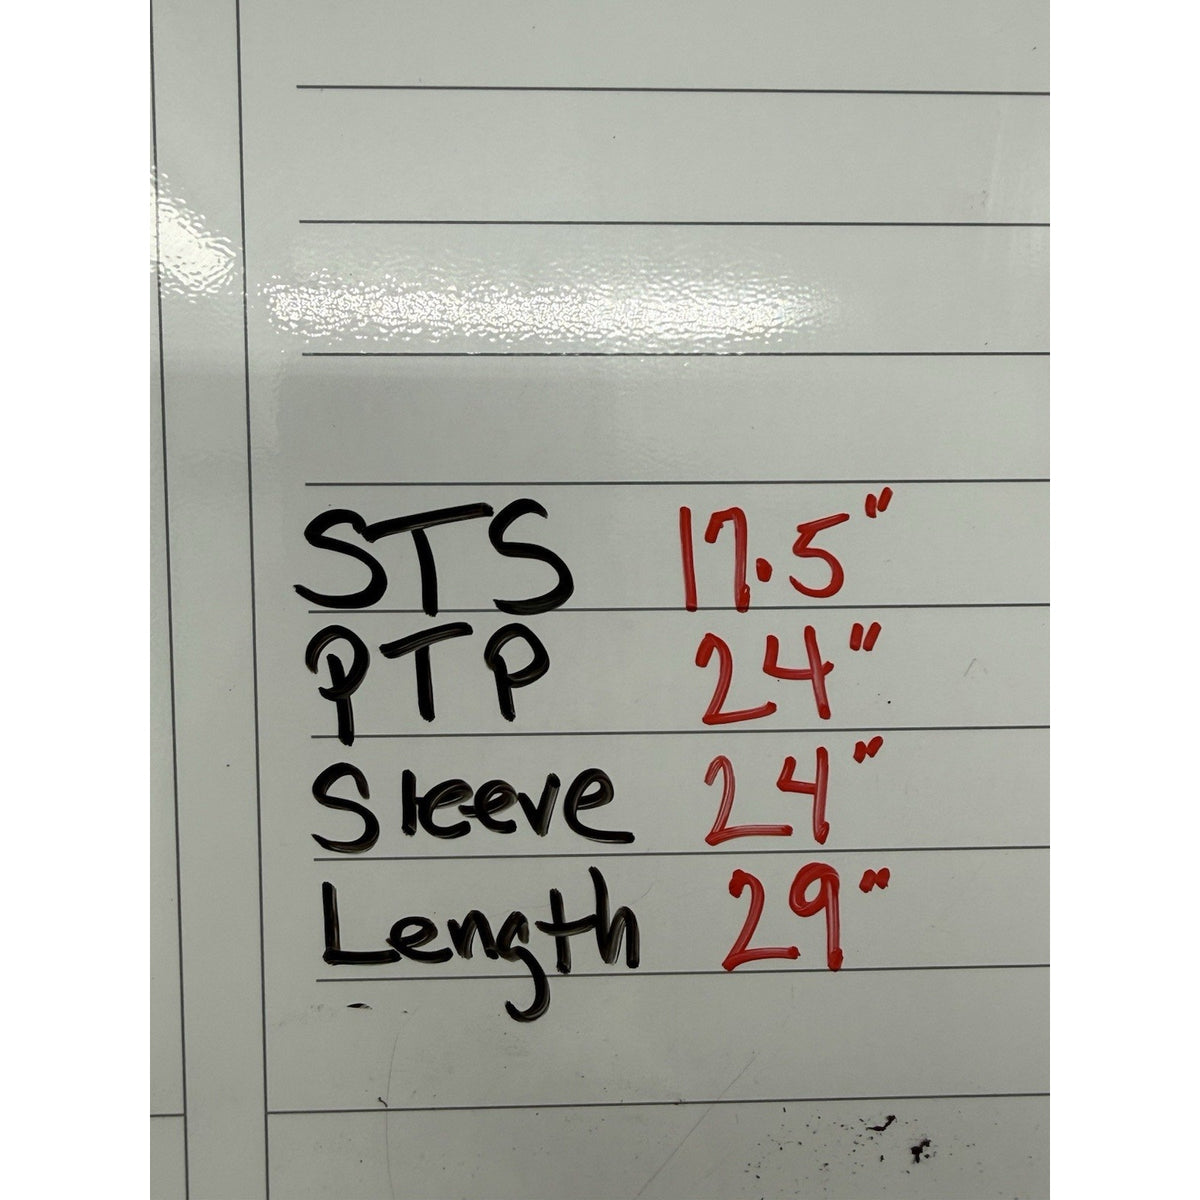 STS 17.5"
PTP 24"
Sleeve 24"
Length 29"